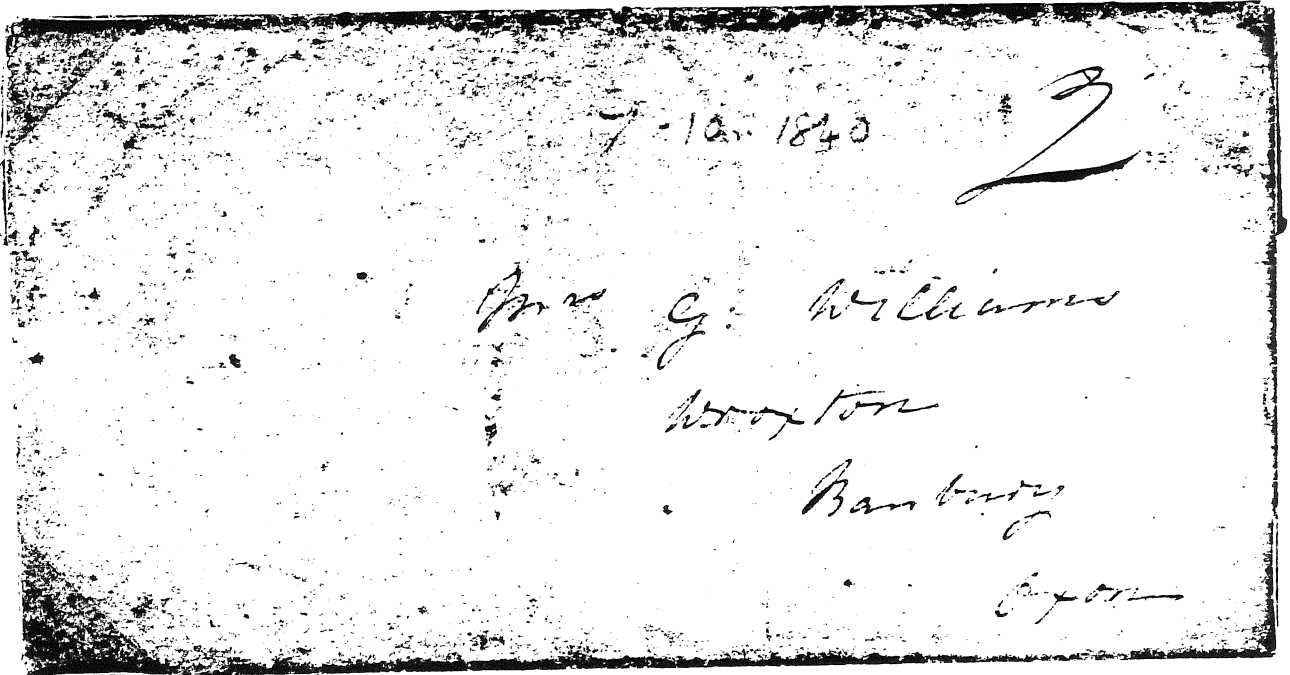 7 Jan 1840
2
Mrs G. Williams
Wroxton
Banbury
Oxon